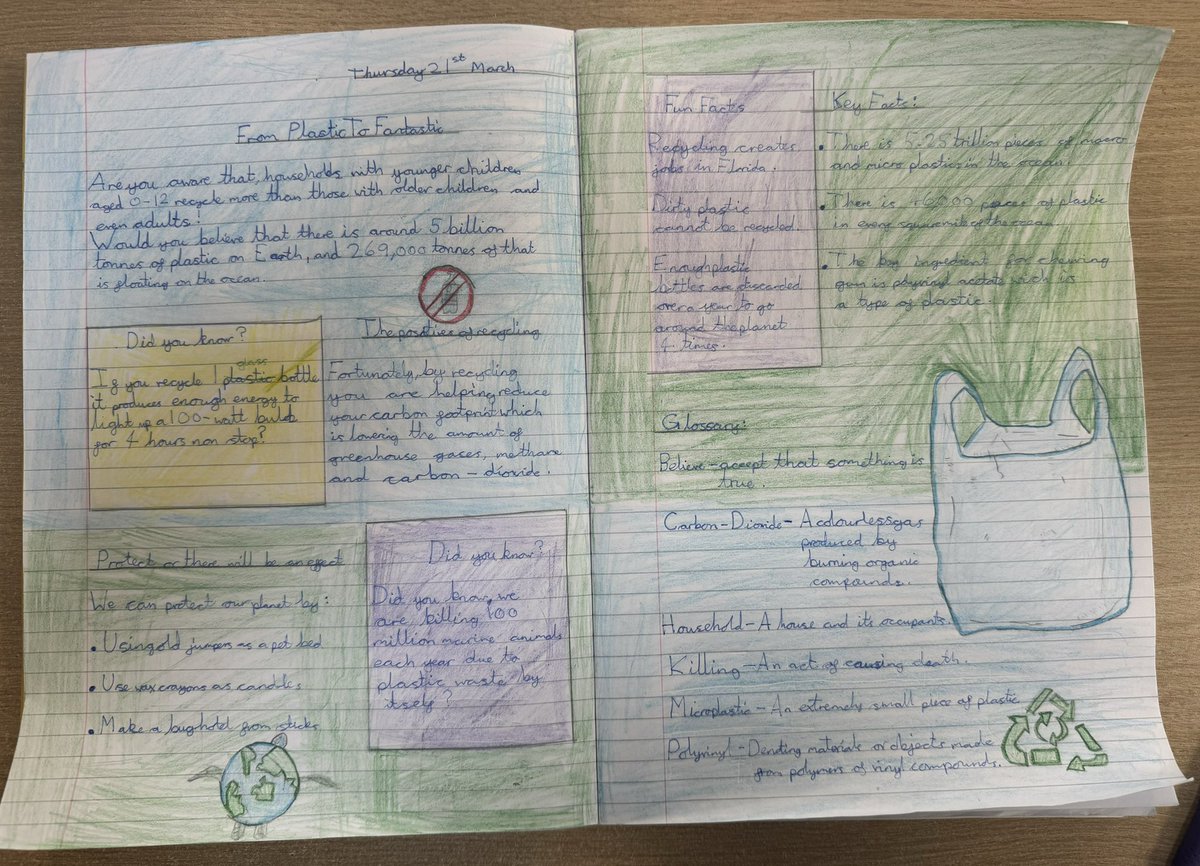 Thursday 21st March
From Plastic To Fantastic
Are you aware that, households with younger children
aged 0-12 recycle more than those with older children and
even adults!
Would you believe that there is around 5 billion
tonnes of plastic on Earth, and 269,000 tonnes of that
is floating on the ocean.
Did you know?
If you recycle 1 plastic bottle
glass
it produces enough energy to
light up a 100-watt bulb
for 4 hours non stop?
The positives of recycling
Fortunately, by recycling
you are helping reduce
your carbon footprint which
is lowering the amount of
greenhouse gaces, methane
and carbon-dioxide.
Protect or there will be an effect
We can protect our planet by:
• Using old jumpers as a pet bed
• Use wax crayons as candles
• Make a bug hotel from sticks
Did you know?
Did you know, we
are killing 100
million marine animals
each year due to
plastic waste by
itself?
Fun Facts
Recycling creates
jobs in Florida.
Dirty plastic
cannot be recycled.
Enough plastic
bottles are discarded
over a year to go
around the planet
4 times.
Key Facts:
• There is 5.25 trillion pieces of macro
and micro plastics in the ocean.
• There is 46,000 pieces of plastic
in every square mile of the ocean
• The big ingredient for chewing
gum is polyvinyl acetate which is
a type of plastic.
Glossary:
Believe-accept that something is
true.
Carbon-Dioxide- A colourless gas
produced by
burning organic
compounds.
Household-A house and its occupants.
Killing-An act of causing death.
Microplastic-An extremely small piece of plastic.
Polyvinyl-Dending materials or objects made
from polymers of vinyl compounds.